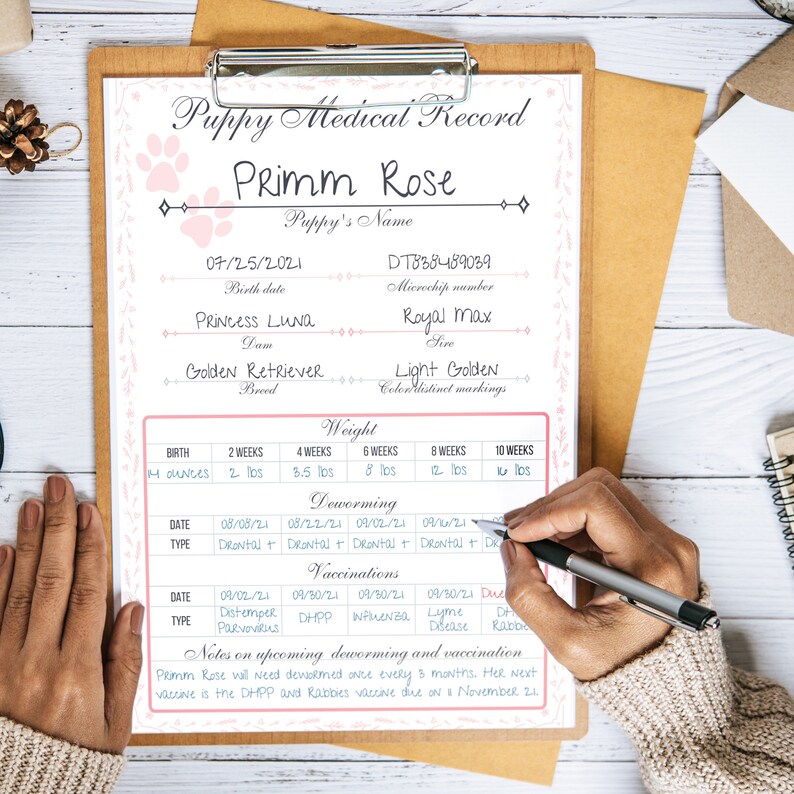 Puppy Medical Record
Primm Rose
Puppy's Name
07/25/2021 DT838489039
Birth date Microchip number
Princess Luna Royal Max
Dam Sire
Golden Retriever Light Golden
Breed Color/distinct markings
Weight
BIRTH 2 WEEKS 4 WEEKS 6 WEEKS 8 WEEKS 10 WEEKS
14 ounces 2 lbs 3.5 lbs 8 lbs 12 lbs 16 lbs
Deworming
DATE 08/08/21 08/22/21 09/02/21 09/16/21
TYPE Drontal + Drontal + Drontal + Drontal +
Vaccinations
DATE 09/02/21 09/30/21 09/30/21 09/30/21 Due
TYPE Distemper Parvovirus DHPP Influenza Lyme Disease Rabbie
Notes on upcoming deworming and vaccination
Primm Rose will need dewormed once every 3 months. Her next
vaccine is the DHPP and Rabbies vaccine due on 11 November 21.